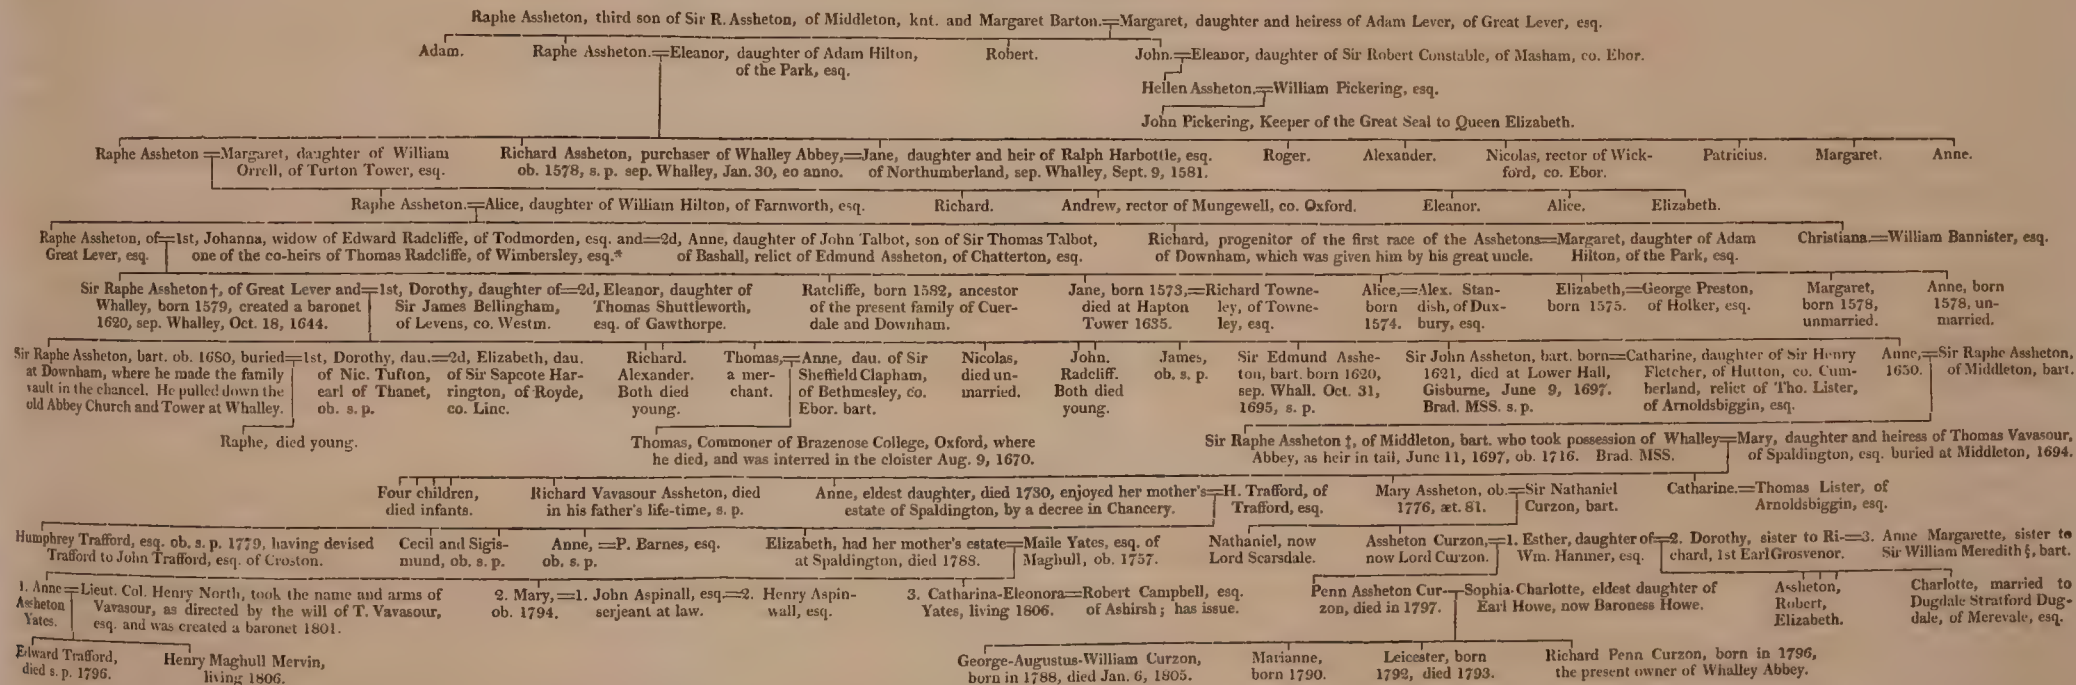 Raphe Assheton, third son of Sir R. Assheton, of Middleton, knt. and Margaret Barton.=Margaret, daughter and heiress of Adam Lever, of Great Lever, esq.
Adam.
Raphe Assheton.=Eleanor, daughter of Adam Hilton,
of the Park, esq.
Robert.
John.=Eleanor, daughter of Sir Robert Constable, of Masham, co. Ebor.
Hellen Assheton.=William Pickering, esq.
John Pickering, Keeper of the Great Seal to Queen Elizabeth.
Raphe Assheton=Margaret, daughter of William
Orrell, of Turton Tower, esq.
Richard Assheton, purchaser of Whalley Abbey,=Jane, daughter and heir of Ralph Harbottle, esq.
ob. 1578, s. p. sep. Whalley, Jan. 30, eo anno. of Northumberland, sep. Whalley, Sept. 9, 1581.
Roger.
Alexander.
Nicolas, rector of Wick-
ford, co. Ebor.
Patricius.
Margaret.
Anne.
Raphe Assheton.=Alice, daughter of William Hilton, of Farnworth, esq.
Richard.
Andrew, rector of Mungewell, co. Oxford.
Eleanor.
Alice.
Elizabeth.
Raphe Assheton, of=1st, Johanna, widow of Edward Radcliffe, of Todmorden, esq. and=2d, Anne, daughter of John Talbot, son of Sir Thomas Talbot,
Great Lever, esq. one of the co-heirs of Thomas Radcliffe, of Wimbersley, esq.* of Bashall, relict of Edmund Assheton, of Chatterton, esq.
Richard, progenitor of the first race of the Asshetons=Margaret, daughter of Adam
of Downham, which was given him by his great uncle. Hilton, of the Park, esq.
Christiana.=William Bannister, esq.
Sir Raphe Assheton†, of Great Lever and=1st, Dorothy, daughter of=2d, Eleanor, daughter of
Whalley, born 1579, created a baronet Sir James Bellingham, Thomas Shuttleworth,
1620, sep. Whalley, Oct. 18, 1644. of Levens, co. Westm. esq. of Gawthorpe.
Ratcliffe, born 1582, ancestor
of the present family of Cuer-
dale and Downham.
Jane, born 1573,=Richard Towne-
died at Hapton ley, of Towne-
Tower 1635. ley, esq.
Alice,=Alex. Stan-
born dish, of Dux-
1574. bury, esq.
Elizabeth,=George Preston,
born 1575. of Holker, esq.
Margaret,
born 1578,
unmarried.
Anne, born
1578, un-
married.
Sir Raphe Assheton, bart. ob. 1680, buried=1st, Dorothy, dau.=2d, Elizabeth, dau.
at Downham, where he made the family of Nic. Tufton, of Sir Sapcote Har-
vault in the chancel. He pulled down the earl of Thanet, rington, of Royde,
old Abbey Church and Tower at Whalley. ob. s. p. co. Linc.
Richard.
Alexander.
Both died
young.
Thomas,=Anne, dau. of Sir
a mer- Sheffield Clapham,
chant. of Bethmesley, co.
Ebor. bart.
Nicolas,
died un-
married.
John.
Radcliff.
Both died
young.
James,
ob. s. p.
Sir Edmund Asshe-
ton, bart. born 1620,
sep. Whall. Oct. 31,
1695, s. p.
Sir John Assheton, bart. born=Catharine, daughter of Sir Henry
1621, died at Lower Hall, Fletcher, of Hutton, co. Cum-
Gisburne, June 9, 1697. berland, relict of Tho. Lister,
Brad. MSS. s. p. of Arnoldsbiggin, esq.
Anne,=Sir Raphe Assheton,
1630. of Middleton, bart.
Raphe, died young.
Thomas, Commoner of Brazenose College, Oxford, where
he died, and was interred in the cloister Aug. 9, 1670.
Sir Raphe Assheton ‡, of Middleton, bart. who took possession of Whalley=Mary, daughter and heiress of Thomas Vavasour,
Abbey, as heir in tail, June 11, 1697, ob. 1716. Brad. MSS. of Spaldington, esq. buried at Middleton, 1694.
Four children,
died infants.
Richard Vavasour Assheton, died
in his father's life-time, s. p.
Anne, eldest daughter, died 1730, enjoyed her mother's=H. Trafford, of
estate of Spaldington, by a decree in Chancery. Trafford, esq.
Mary Assheton, ob.=Sir Nathaniel
1776, æt. 81. Curzon, bart.
Catharine.=Thomas Lister, of
Arnoldsbiggin, esq.
Humphrey Trafford, esq. ob. s. p. 1779, having devised
Trafford to John Trafford, esq. of Croston.
Cecil and Sigis-
mund, ob. s. p.
Anne,=P. Barnes, esq.
ob. s. p.
Elizabeth, had her mother's estate=Maile Yates, esq. of
at Spaldington, died 1788. Maghull, ob. 1757.
Nathaniel, now
Lord Scarsdale.
Assheton Curzon,=1. Esther, daughter of=2. Dorothy, sister to Ri-=3. Anne Margarette, sister to
now Lord Curzon. Wm. Hanmer, esq. chard, 1st Earl Grosvenor. Sir William Meredith §, bart.
1. Anne=Lieut. Col. Henry North, took the name and arms of
Assheton Vavasour, as directed by the will of T. Vavasour,
Yates. esq. and was created a baronet 1801.
2. Mary,=1. John Aspinall, esq.=2. Henry Aspin-
ob. 1794. serjeant at law. wall, esq.
3. Catharina-Eleonora=Robert Campbell, esq.
Yates, living 1806. of Ashirsh; has issue.
Penn Assheton Cur-=Sophia-Charlotte, eldest daughter of
zon, died in 1797. Earl Howe, now Baroness Howe.
Assheton,
Robert,
Elizabeth.
Charlotte, married to
Dugdale Stratford Dug-
dale, of Merevale, esq.
Edward Trafford,
died s. p. 1796.
Henry Maghull Mervin,
living 1806.
George-Augustus-William Curzon,
born in 1788, died Jan. 6, 1805.
Marianne,
born 1790.
Leicester, born
1792, died 1793.
Richard Penn Curzon, born in 1796,
the present owner of Whalley Abbey.